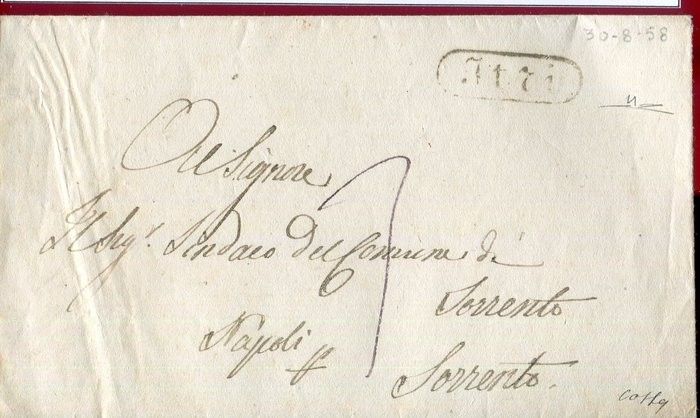 30-8-58
Itri
Al Signore
Il Sig.r Sindaco del Comune di
Sorrento
Napoli
Sorrento.